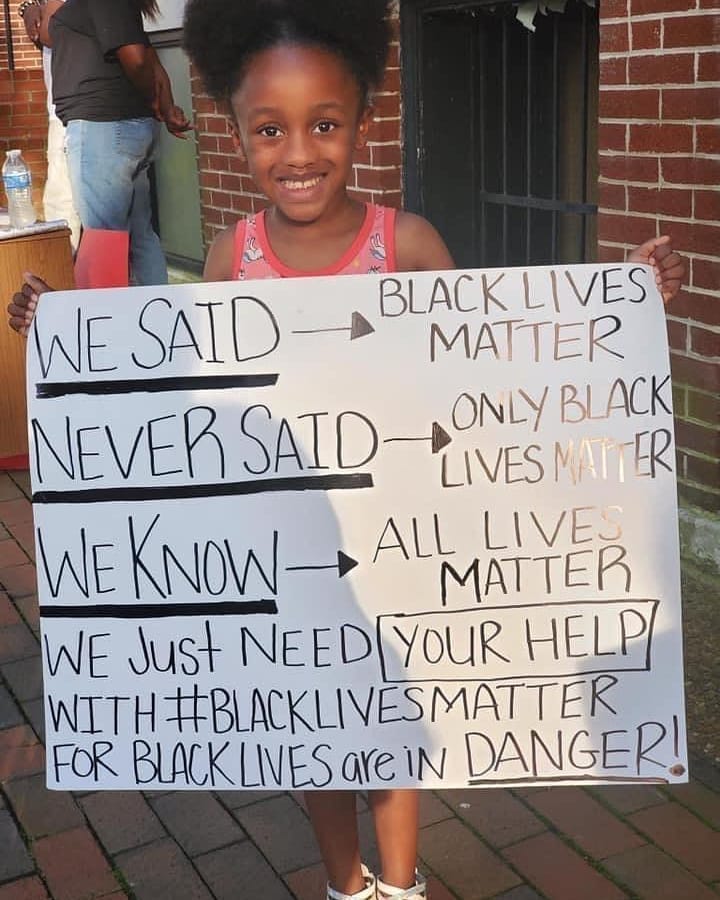 WE SAID → BLACK LIVES
MATTER
NEVER SAID → ONLY BLACK
LIVES MATTER
WE KNOW → ALL LIVES
MATTER
WE JuSt NEED YOUR HELP
WITH #BLACKLIVESMATTER
FOR BLACK LIVES are iN DANGER!